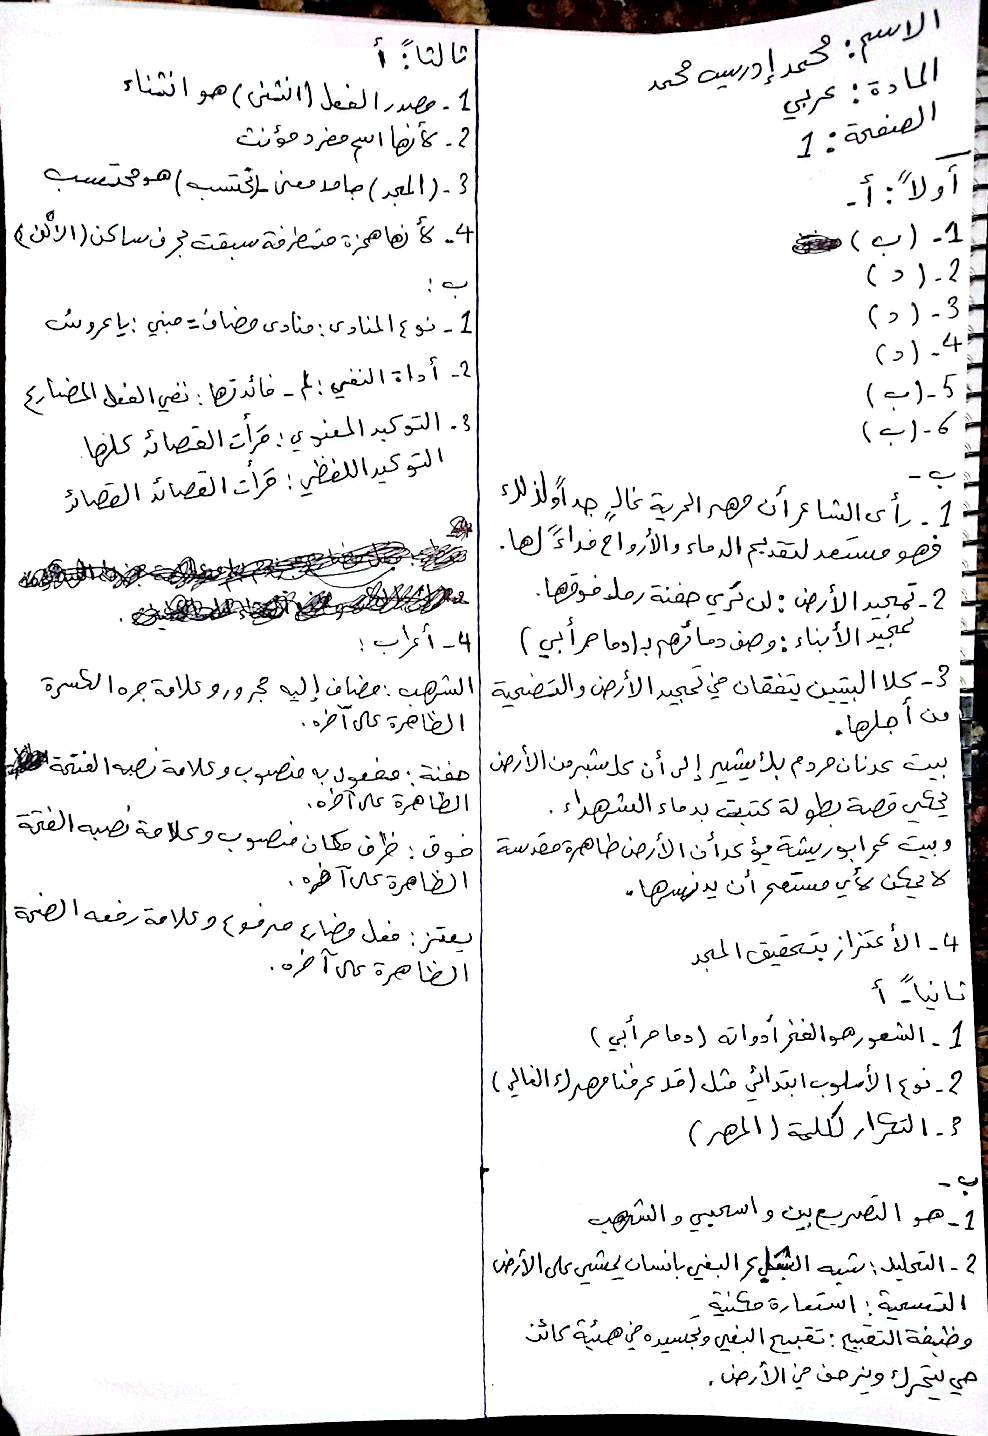 الاسم: محمد إدريس محمد
المادة: عربي
الصفحة: 1
أولاً: أ-
1- (ب)
2- (د)
3- (د)
4- (د)
5- (ب)
6- (ب)
ب-
1- رأى الشاعر أن مهر الحرية غالٍ جداً ولذلك
فهو مستعد لتقديم الدماء والأرواح فداءً لها.
2- تمجيد الأرض: لن تري حفنة رمل فوقها.
تمجيد الأبناء: وصف دمائهم بـ (دما حر أبي)
3- كلا البيتين يتفقان في تمجيد الأرض والتضحية
من أجلها.
بيت عدنان مردم بك يشير إلى أن كل شبر من الأرض
يحكي قصة بطولة كتبت بدماء الشهداء.
وبيت عمر ابو ريشة يؤكد أن الأرض طاهرة مقدسة
لا يمكن لأي مستعمر أن يدنسها.
4- الأعتزاز بتحقيق المجد
ثانياً- أ
1- الشعور هو الفخر أدواته (دما حر أبي)
2- نوع الأسلوب ابتدائي مثل (قد عرفنا مهرك الغالي)
3- التكرار لكلمة (المهر)
ب-
1- هو التصريع بين واسحبي والشهب
2- التحليل: شبه البغي بانسان يمشي على الأرض
التسمية: استعارة مكنية
وظيفة التقبيح: تقبيح البغي وتجسيده في هيئة كائن
حي يتحرك ويزحف في الأرض.
ثالثاً: أ
1- مصدر الفعل (انثنى) هو انثناء
2- لأنها اسم مفرد مؤنث
3- (المجد) جامد معنى - (تحتسب) هو محتسب
4- لأنها همزة متطرفة سبقت بحرف ساكن (الألف)
ب:
1- نوع المنادى: منادى مضاف = مبني: يا عروس
2- أداة النفي: لم - فائدتها: نفي الفعل المضارع
3- التوكيد المعنوي: قرأت القصائد كلها
التوكيد اللفظي: قرأت القصائد القصائد
4- أعراب:
الشهب: مضاف إليه مجرور وعلامة جره الكسرة
الظاهرة على آخره.
حفنة: مفعول به منصوب وعلامة نصبه الفتحة
الظاهرة على آخره.
فوق: ظرف مكان منصوب وعلامة نصبه الفتحة
الظاهرة على آخره.
يعتز: فعل مضارع مرفوع وعلامة رفعه الضمة
الظاهرة على آخره.